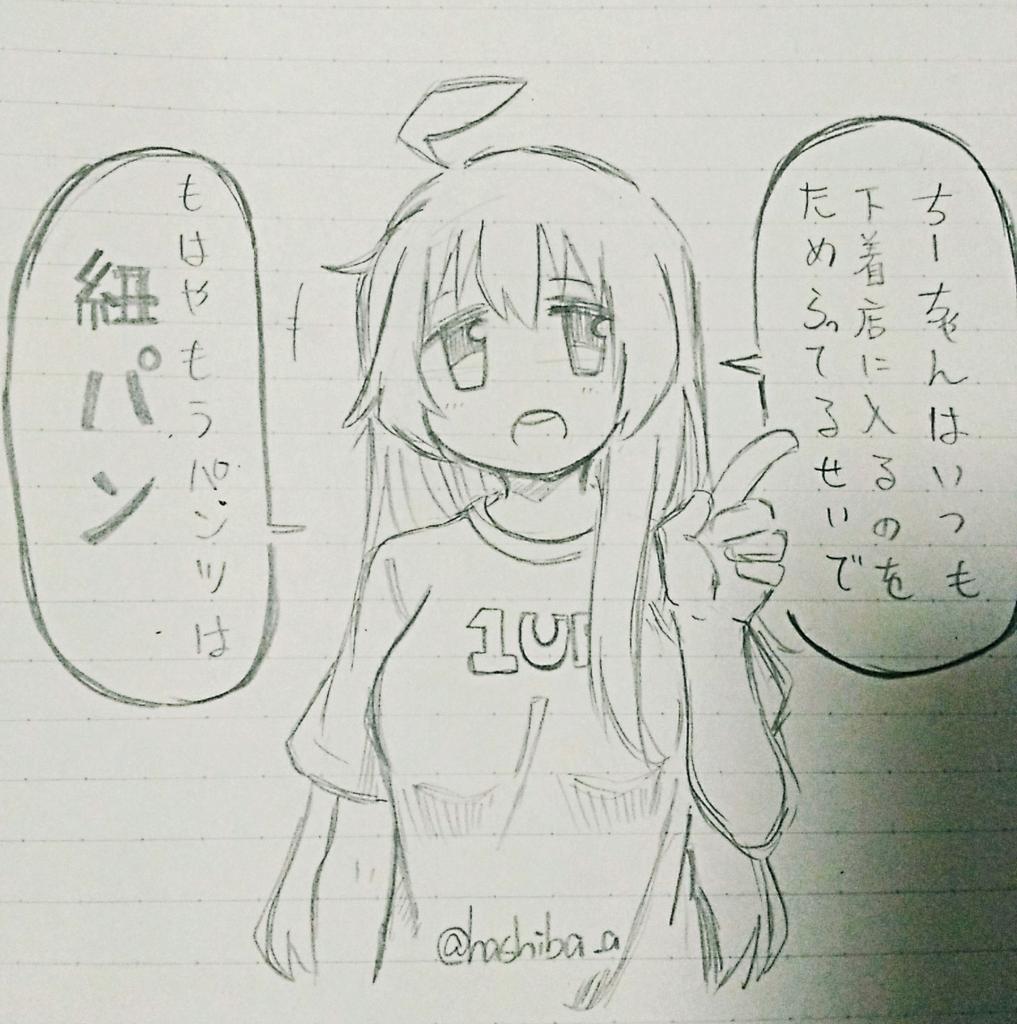 ちーちゃんはいつも
下着店に入るのを
ためらってるせいで
もはやもうパンツは
紐パン
1UP
@hashiba_a